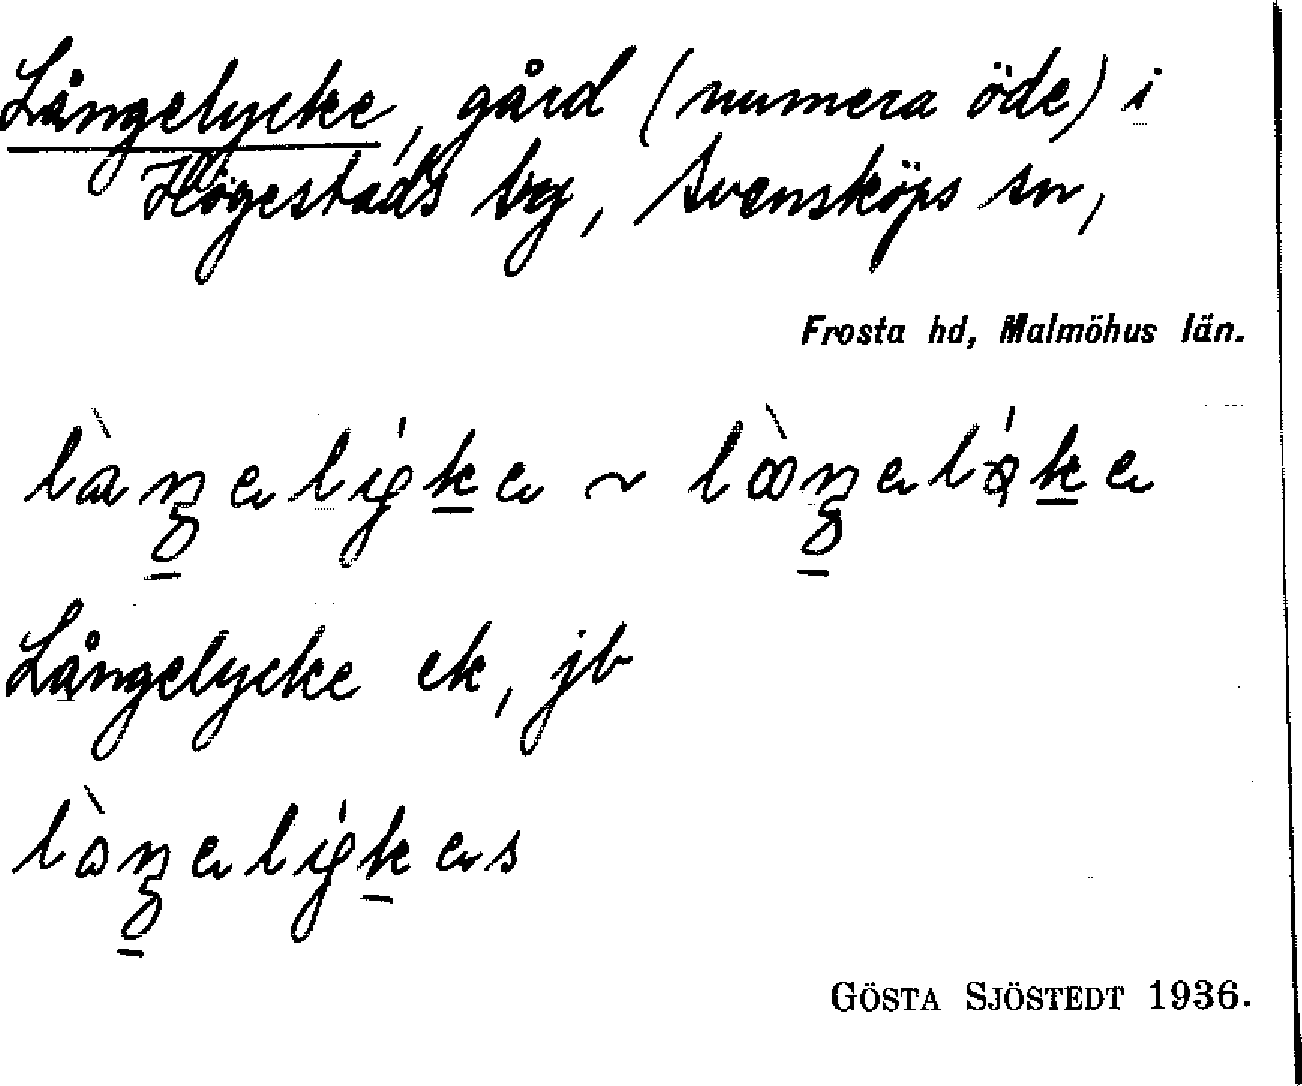 Långelycke, gård (numera öde) i
Högestads by, Svensköps sn,
Frosta hd, Malmöhus län.
Långelycke ek, jb
GÖSTA SJÖSTEDT 1936.